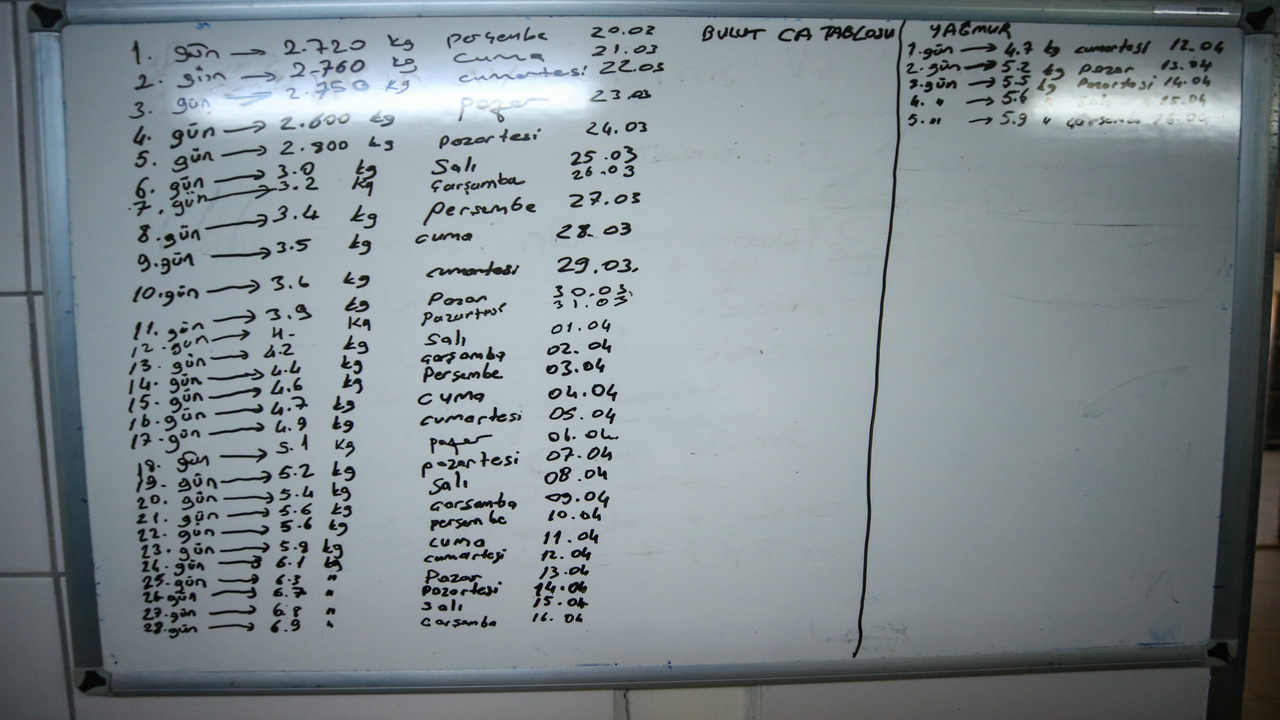 BULUT CA TABLOSU
1. gün → 2.720 kg perşembe 20.02
2. gün → 2.760 kg cuma 21.03
3. gün → 2.750 kg cumartesi 22.03
4. gün → 2.600 kg pazar 23.03
5. gün → 2.800 kg pazartesi 24.03
6. gün → 3.0 kg Salı 25.03
7. gün → 3.2 kg Çarşamba 26.03
8. gün → 3.4 kg persembe 27.03
9. gün → 3.5 kg cuma 28.03
10. gün → 3.6 kg cumartesi 29.03.
11. gün → 3.9 kg Pazar 30.03.
12. gün → 4- kg Pazartesi 31.03
13. gün → 4.2 kg Salı 01.04
14. gün → 4.4 kg Çarşamba 02.04
15. gün → 4.6 kg Persembe 03.04
16. gün → 4.7 kg cuma 04.04
17. gün → 4.9 kg cumartesi 05.04
18. gün → 5.1 kg pazar 06.04
19. gün → 5.2 kg pazartesi 07.04
20. gün → 5.4 kg Salı 08.04
21. gün → 5.6 kg Çarşamba 09.04
22. gün → 5.6 kg persembe 10.04
23. gün → 5.8 kg cuma 11.04
24. gün → 6.1 kg cumartesi 12.04
25. gün → 6.3 " Pazar 13.04
26 gün → 6.7 " Pazartesi 14.04
27. gün → 6.8 " Salı 15.04
28. gün → 6.9 " Çarşamba 16.04
YAĞMUR
1. gün → 4.7 kg cumartesi 12.04
2. gün → 5.2 kg pazar 13.04
3. gün → 5.5 kg Pazartesi 14.04
4. " → 5.6 " 15.04
5. " → 5.9 " Çarşamba 16.04